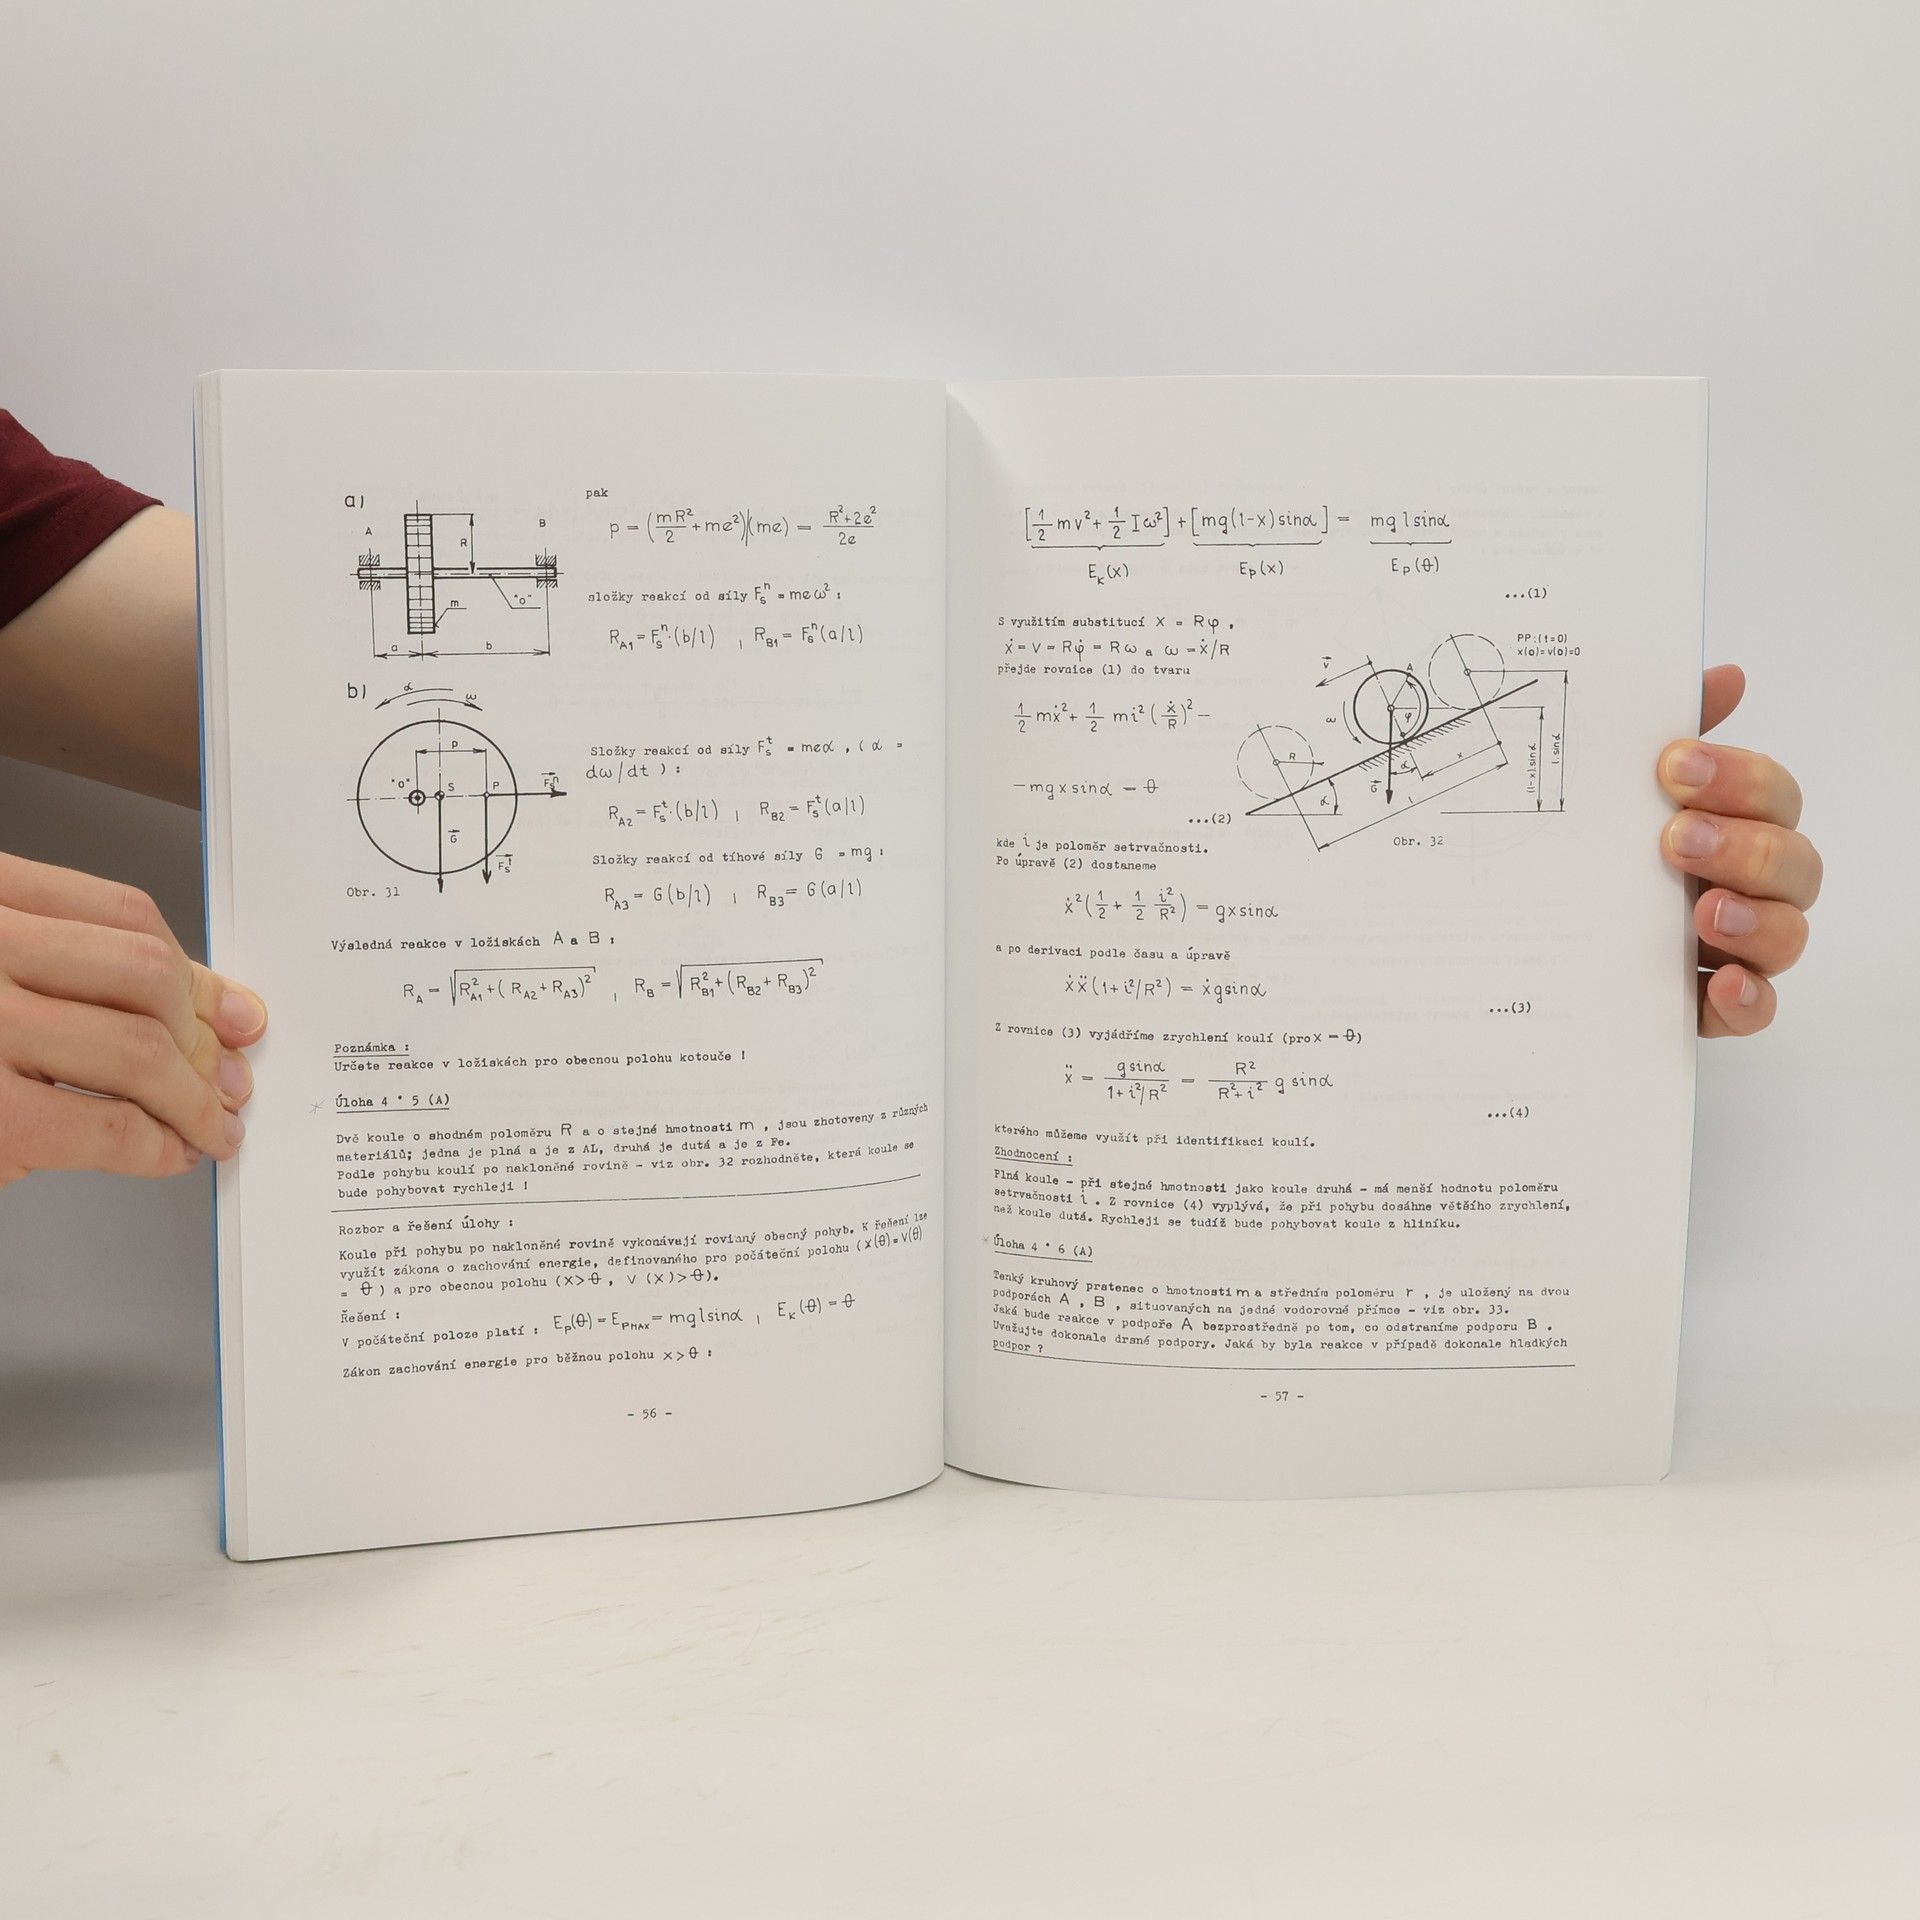 a)
A
B
R
"o"
m
a
b
b)
α
ω
p
"o"
S
P
F⃗sⁿ
G⃗
F⃗sᵗ
Obr. 31
pak
p = (mR²/2 + me²)/(me) = (R²+2e²)/2e
složky reakcí od síly Fsⁿ = meω² :
R_A1 = Fsⁿ·(b/l) , R_B1 = Fsⁿ(a/l)
Složky reakcí od síly Fsᵗ = meα , ( α =
dω/dt ) :
R_A2 = Fsᵗ·(b/l) , R_B2 = Fsᵗ(a/l)
Složky reakcí od tíhové síly G = mg :
R_A3 = G(b/l) , R_B3 = G(a/l)
Výsledná reakce v ložiskách A a B :
R_A = √(R²_A1 + ( R_A2 + R_A3)²) , R_B = √(R²_B1 + (R_B2 + R_B3)²)
Poznámka :
Určete reakce v ložiskách pro obecnou polohu kotouče !
Úloha 4 * 5 (A)
Dvě koule o shodném poloměru R a o stejné hmotnosti m , jsou zhotoveny z různých
materiálů; jedna je plná a je z AL, druhá je dutá a je z Fe.
Podle pohybu koulí po nakloněné rovině - viz obr. 32 rozhodněte, která koule se
bude pohybovat rychleji !
Rozbor a řešení úlohy :
Koule při pohybu po nakloněné rovině vykonávají rovinný obecný pohyb. K řešení lze
využít zákona o zachování energie, definovaného pro počáteční polohu (x(0) = v(0)
= 0 ) a pro obecnou polohu (x>0 , v (x)>0).
Řešení :
V počáteční poloze platí : Ep(0) = E_PMAX = mglsinα , Ek(0) = 0
Zákon zachování energie pro běžnou polohu x>0 :
- 56 -
[½ mv² + ½ Iω²] + [mg(l-x)sinα] = mg l sinα
Ek(x) Ep(x) Ep(0)
...(1)
S využitím substitucí X = Rφ ,
ẋ = v = Rφ̇ = Rω a ω = ẋ/R
přejde rovnice (1) do tvaru
½ mẋ² + ½ mi² (ẋ/R)² −
− mgxsinα = 0
...(2)
PP:(t=0)
x(0)=v(0)=0
v⃗
A
ω
φ
R
x
α
α
G⃗
l
(l-x).sinα
l.sinα
Obr. 32
kde i je poloměr setrvačnosti.
Po úpravě (2) dostaneme
ẋ²(½ + ½ i²/R²) = gxsinα
a po derivaci podle času a úpravě
ẋẍ(1+i²/R²) = ẋgsinα
...(3)
Z rovnice (3) vyjádříme zrychlení koulí (pro X = 0)
ẍ = gsinα/(1+i²/R²) = R²/(R²+i²) g sinα
...(4)
kterého můžeme využít při identifikaci koulí.
Zhodnocení :
Plná koule - při stejné hmotnosti jako koule druhá - má menší hodnotu poloměru
setrvačnosti i . Z rovnice (4) vyplývá, že při pohybu dosáhne většího zrychlení,
než koule dutá. Rychleji se tudíž bude pohybovat koule z hliníku.
Úloha 4 * 6 (A)
Tenký kruhový prstenec o hmotnosti m a středním poloměru r , je uložený na dvou
podporách A , B , situovaných na jedné vodorovné přímce - viz obr. 33.
Jaká bude reakce v podpoře A bezprostředně po tom, co odstraníme podporu B .
Uvažujte dokonale drsné podpory. Jaká by byla reakce v případě dokonale hladkých
podpor ?
- 57 -